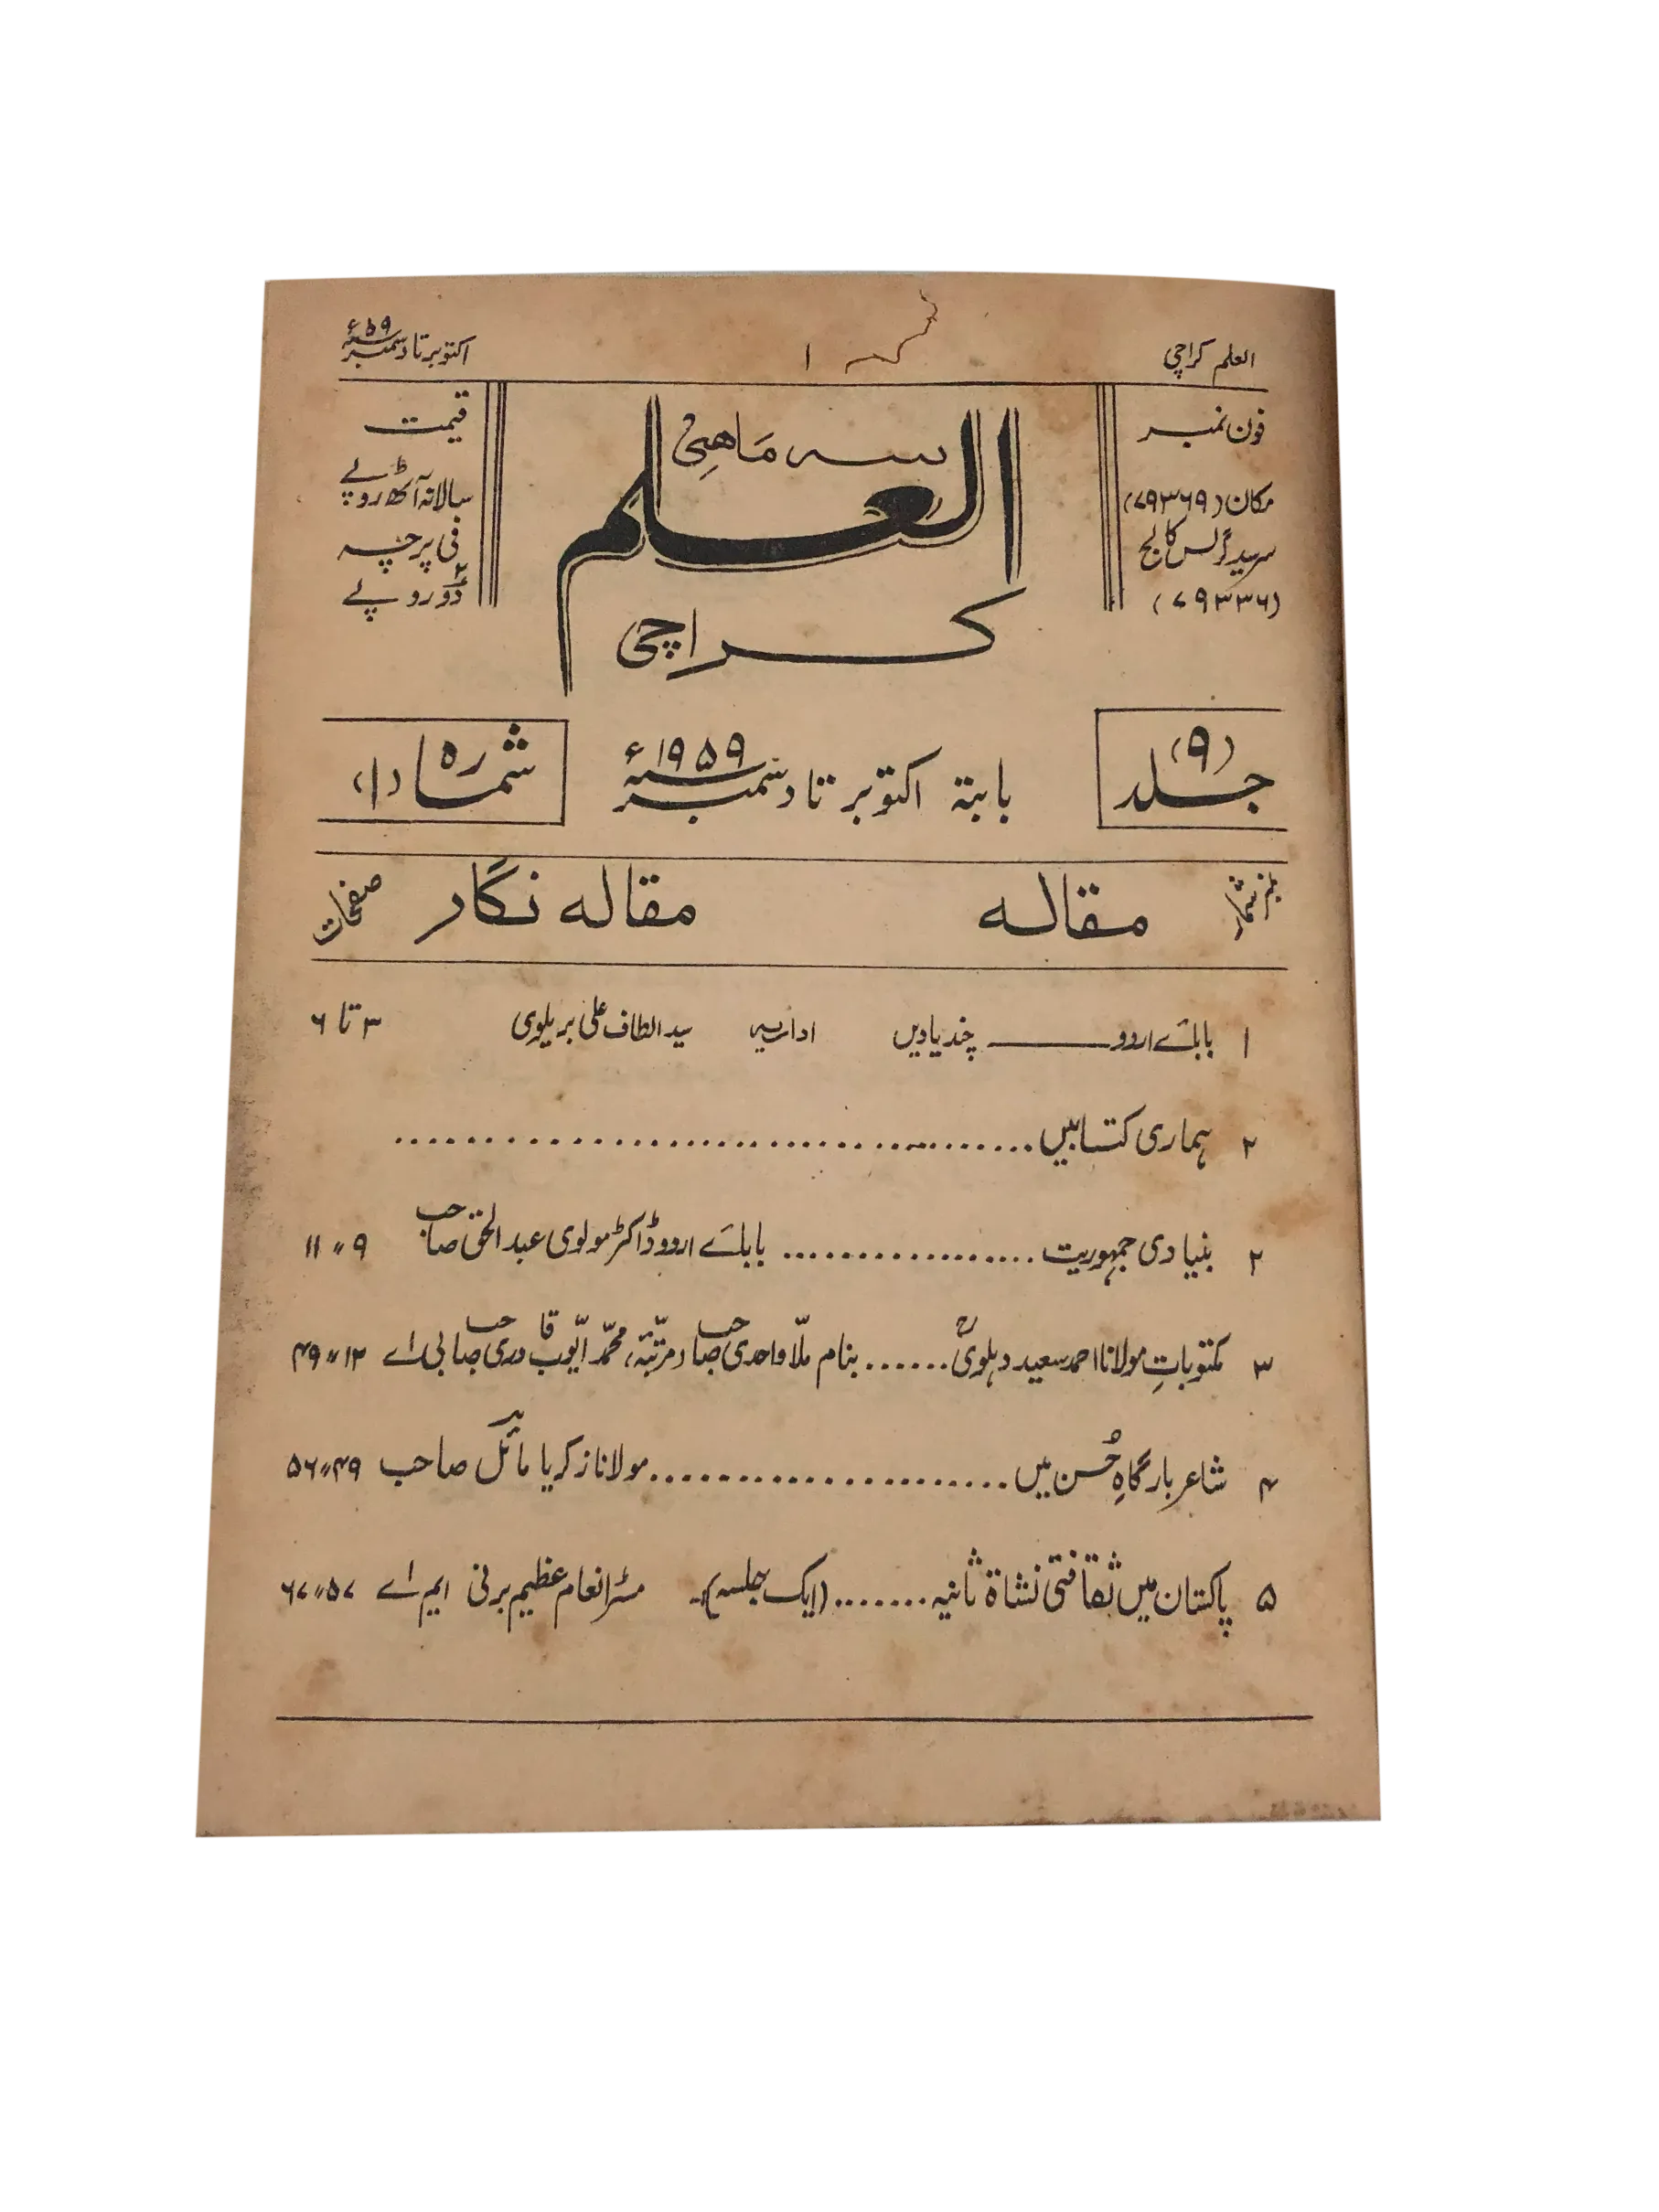 العلم کراچی ۱ اکتوبر تا دسمبر سنہ ۵۹ء
فون نمبر
مکان (۷۹۳۶۹)
سرسید گرلس کالج
(۷۹۳۳۶)
سہ ماہی
العلم
کراچی
قیمت
سالانہ آٹھ روپئے
فی پرچہ
دو روپئے
جلد (۹)
بابتہ اکتوبر تا دسمبر سنہ ۱۹۵۹ء
شمارہ (۱)
نمبر شمار مقالہ مقالہ نگار صفحات
۱ بابائے اردو ــــــ چند یادیں اداریہ سید الطاف علی بریلوی ۳ تا ۶
۲ ہماری کتابیں ..............................
۲ بنیادی جمہوریت .................. بابائے اردو ڈاکٹر مولوی عبدالحق صاحب ۹ ؍؍ ۱۱
۳ مکتوبات مولانا احمد سعید دہلویؒ ...... بنام ملّا واحدی صاحب (مرتبہ، محمّد ایّوب قادری صاحب بی اے ۱۲ ؍؍ ۴۹
۴ شاعر بارگاہِ حُسن میں ...................... مولانا زکریا مائل صاحب ۴۹ ؍؍ ۵۶
۵ پاکستان میں ثقافتی نشاۃ ثانیہ ........ (ایک جلسہ)۔ مسٹر انعام عظیم برنی ایم اے ۵۷ ؍؍ ۶۷